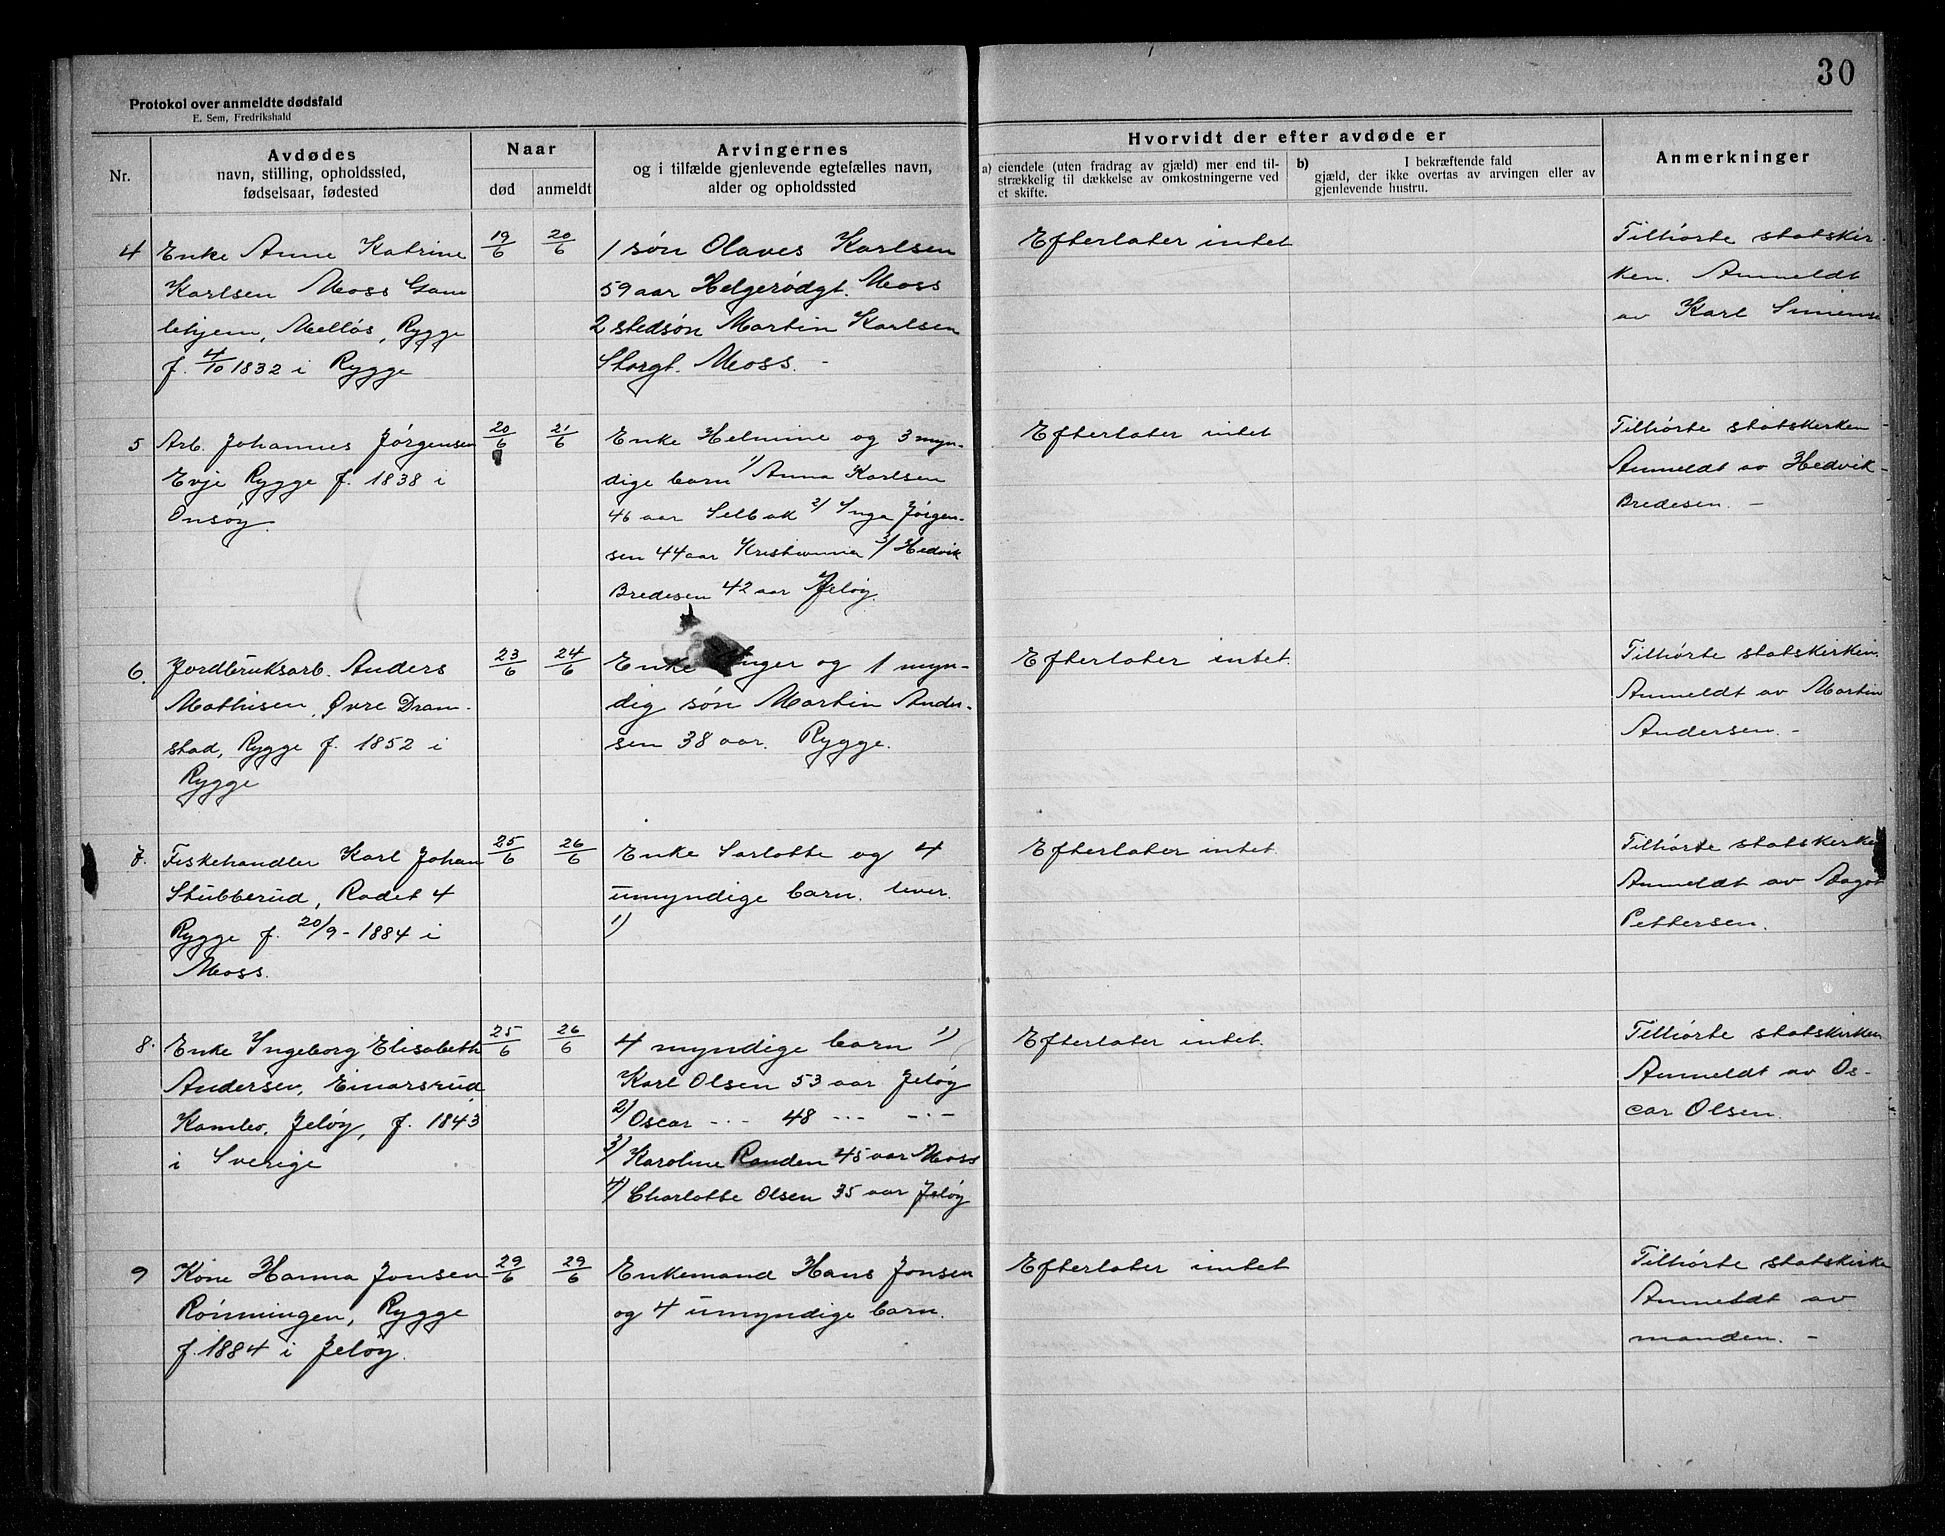 30
Protokol over anmeldte dødsfald
E. Sem, Fredrikshald
Nr.
Avdødes
navn, stilling, opholdssted,
fødselsaar, fødested
Naar
død
anmeldt
Arvingernes
og i tilfælde gjenlevende egtefælles navn,
alder og opholdssted
Hvorvidt der efter avdøde er
a) eiendele (uten fradrag av gjæld) mer end til-
strækkelig til dækkelse av omkostningerne ved
et skifte.
b) I bekræftende fald
gjæld, der ikke overtas av arvingen eller av
gjenlevende hustru.
Anmerkninger
4
Enke Anne Katrine
Karlsen Moss Gam
lehjem, Melløs, Rygge
f. 4/10 1832 i Rygge
19/6
20/6
1 søn Olaves Karlsen
59 aar Helgerødgt. Moss
2 stedsøn Martin Karlsen
Storgt. Moss. -
Efterlater intet
Tilhørte statskir-
ken. Anmeldt
av Karl
5
Arb. Johannes Jørgensen
Evje Rygge f. 1838 i
Onsøy.
20/6
21/6
Enke Helmine og 3 myn-
dige barn 1) Anna Karlsen
46 aar Selbak 2) Inga Jørgen-
sen 44 aar Kristiania 3) Hedvik
Bredesen 42 aar Jeløy.
Efterlater intet
Tilhørte statskirken -
Anmeldt av Hedvik
Bredesen. -
6.
Jordbruksarb. Anders
Mathisen, Øvre Dram-
stad, Rygge f. 1852 i
Rygge
23/6
24/6
Enke Inger og 1 myn-
dig søn Martin Ander-
sen 38 aar. Rygge.
Efterlater intet.
Tilhørte statskirken.
Anmeldt av Martin
Andersen. -
7.
Fiskehandler Karl Johan
Stubberud, Rødet 4
Rygge f. 20/9 - 1884 i
Moss.
25/6
26/6
Enke Sarlotte og 4
umyndige barn. lever.
1)
Efterlater intet.
Tilhørte statskirken
Anmeldt av Aagot
Pettersen.
8.
Enke Ingeborg Elisabeth
Andersen, Einarsrud
Kambo, Jeløy, f. 1843
i Sverige
25/6
26/6
4 myndige barn 1)
Karl Olsen 53 aar Jeløy
2) Oscar -.- 48 -.- -.-
3) Karoline Randen 45 aar Moss
4) Charlotte Olsen 35 aar Jeløy
Efterlater intet.
Tilhørte statskirken
Anmeldt av Os-
car Olsen.
9
Kone Hanna Jonsen
Rønningen, Rygge
f. 1884 i Jeløy.
29/6
29/6
Enkemand Hans Jonsen
og 4 umyndige barn.
Efterlater intet
Tilhørte statskirke
Anmeldt av
manden. -